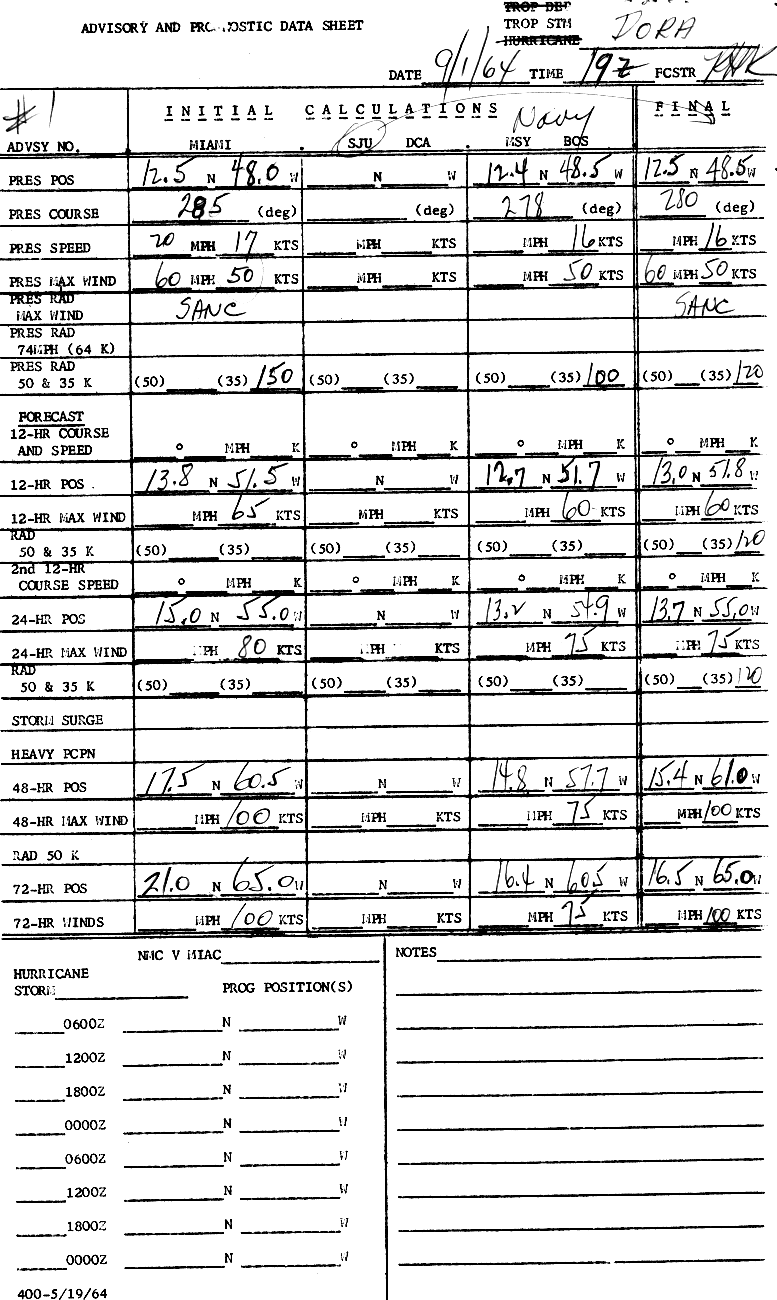 TROP DEP
ADVISORY AND PROGNOSTIC DATA SHEET TROP STM DORA
HURRICANE
DATE 9/1/64 TIME 19Z FCSTR
#1 INITIAL CALCULATIONS FINAL
Navy
ADVSY NO. MIAMI SJU DCA MSY BOS
PRES POS 12.5 N 48.0 W N W 12.4 N 48.5 W 12.5 N 48.5 W
PRES COURSE 285 (deg) (deg) 278 (deg) 280 (deg)
PRES SPEED 20 MPH 17 KTS MPH KTS MPH 16 KTS MPH 16 KTS
PRES MAX WIND 60 MPH 50 KTS MPH KTS MPH 50 KTS 60 MPH 50 KTS
PRES RAD
MAX WIND SANC SANC
PRES RAD
74MPH (64 K)
PRES RAD
50 & 35 K (50) (35) 150 (50) (35) (50) (35) 100 (50) (35) 120
FORECAST
12-HR COURSE
AND SPEED ° MPH K ° MPH K ° MPH K ° MPH K
12-HR POS . 13.8 N 51.5 W N W 12.7 N 51.7 W 13.0 N 51.8 W
12-HR MAX WIND MPH 65 KTS MPH KTS MPH 60 KTS MPH 60 KTS
RAD
50 & 35 K (50) (35) (50) (35) (50) (35) (50) (35) 120
2nd 12-HR
COURSE SPEED ° MPH K ° MPH K ° MPH K ° MPH K
24-HR POS 15.0 N 55.0 W N W 13.2 N 54.9 W 13.7 N 55.0 W
24-HR MAX WIND MPH 80 KTS MPH KTS MPH 75 KTS MPH 75 KTS
RAD
50 & 35 K (50) (35) (50) (35) (50) (35) (50) (35) 120
STORM SURGE
HEAVY PCPN
48-HR POS 17.5 N 60.5 W N W 14.8 N 57.7 W 15.4 N 61.0 W
48-HR MAX WIND MPH 100 KTS MPH KTS MPH 75 KTS MPH 100 KTS
RAD 50 K
72-HR POS 21.0 N 65.0 W N W 16.4 N 60.5 W 16.5 N 65.0 W
72-HR WINDS MPH 100 KTS MPH KTS MPH 75 KTS MPH 100 KTS
NMC V MIAC NOTES
HURRICANE
STORM PROG POSITION(S)
0600Z N W
1200Z N W
1800Z N W
0000Z N W
0600Z N W
1200Z N W
1800Z N W
0000Z N W
400-5/19/64